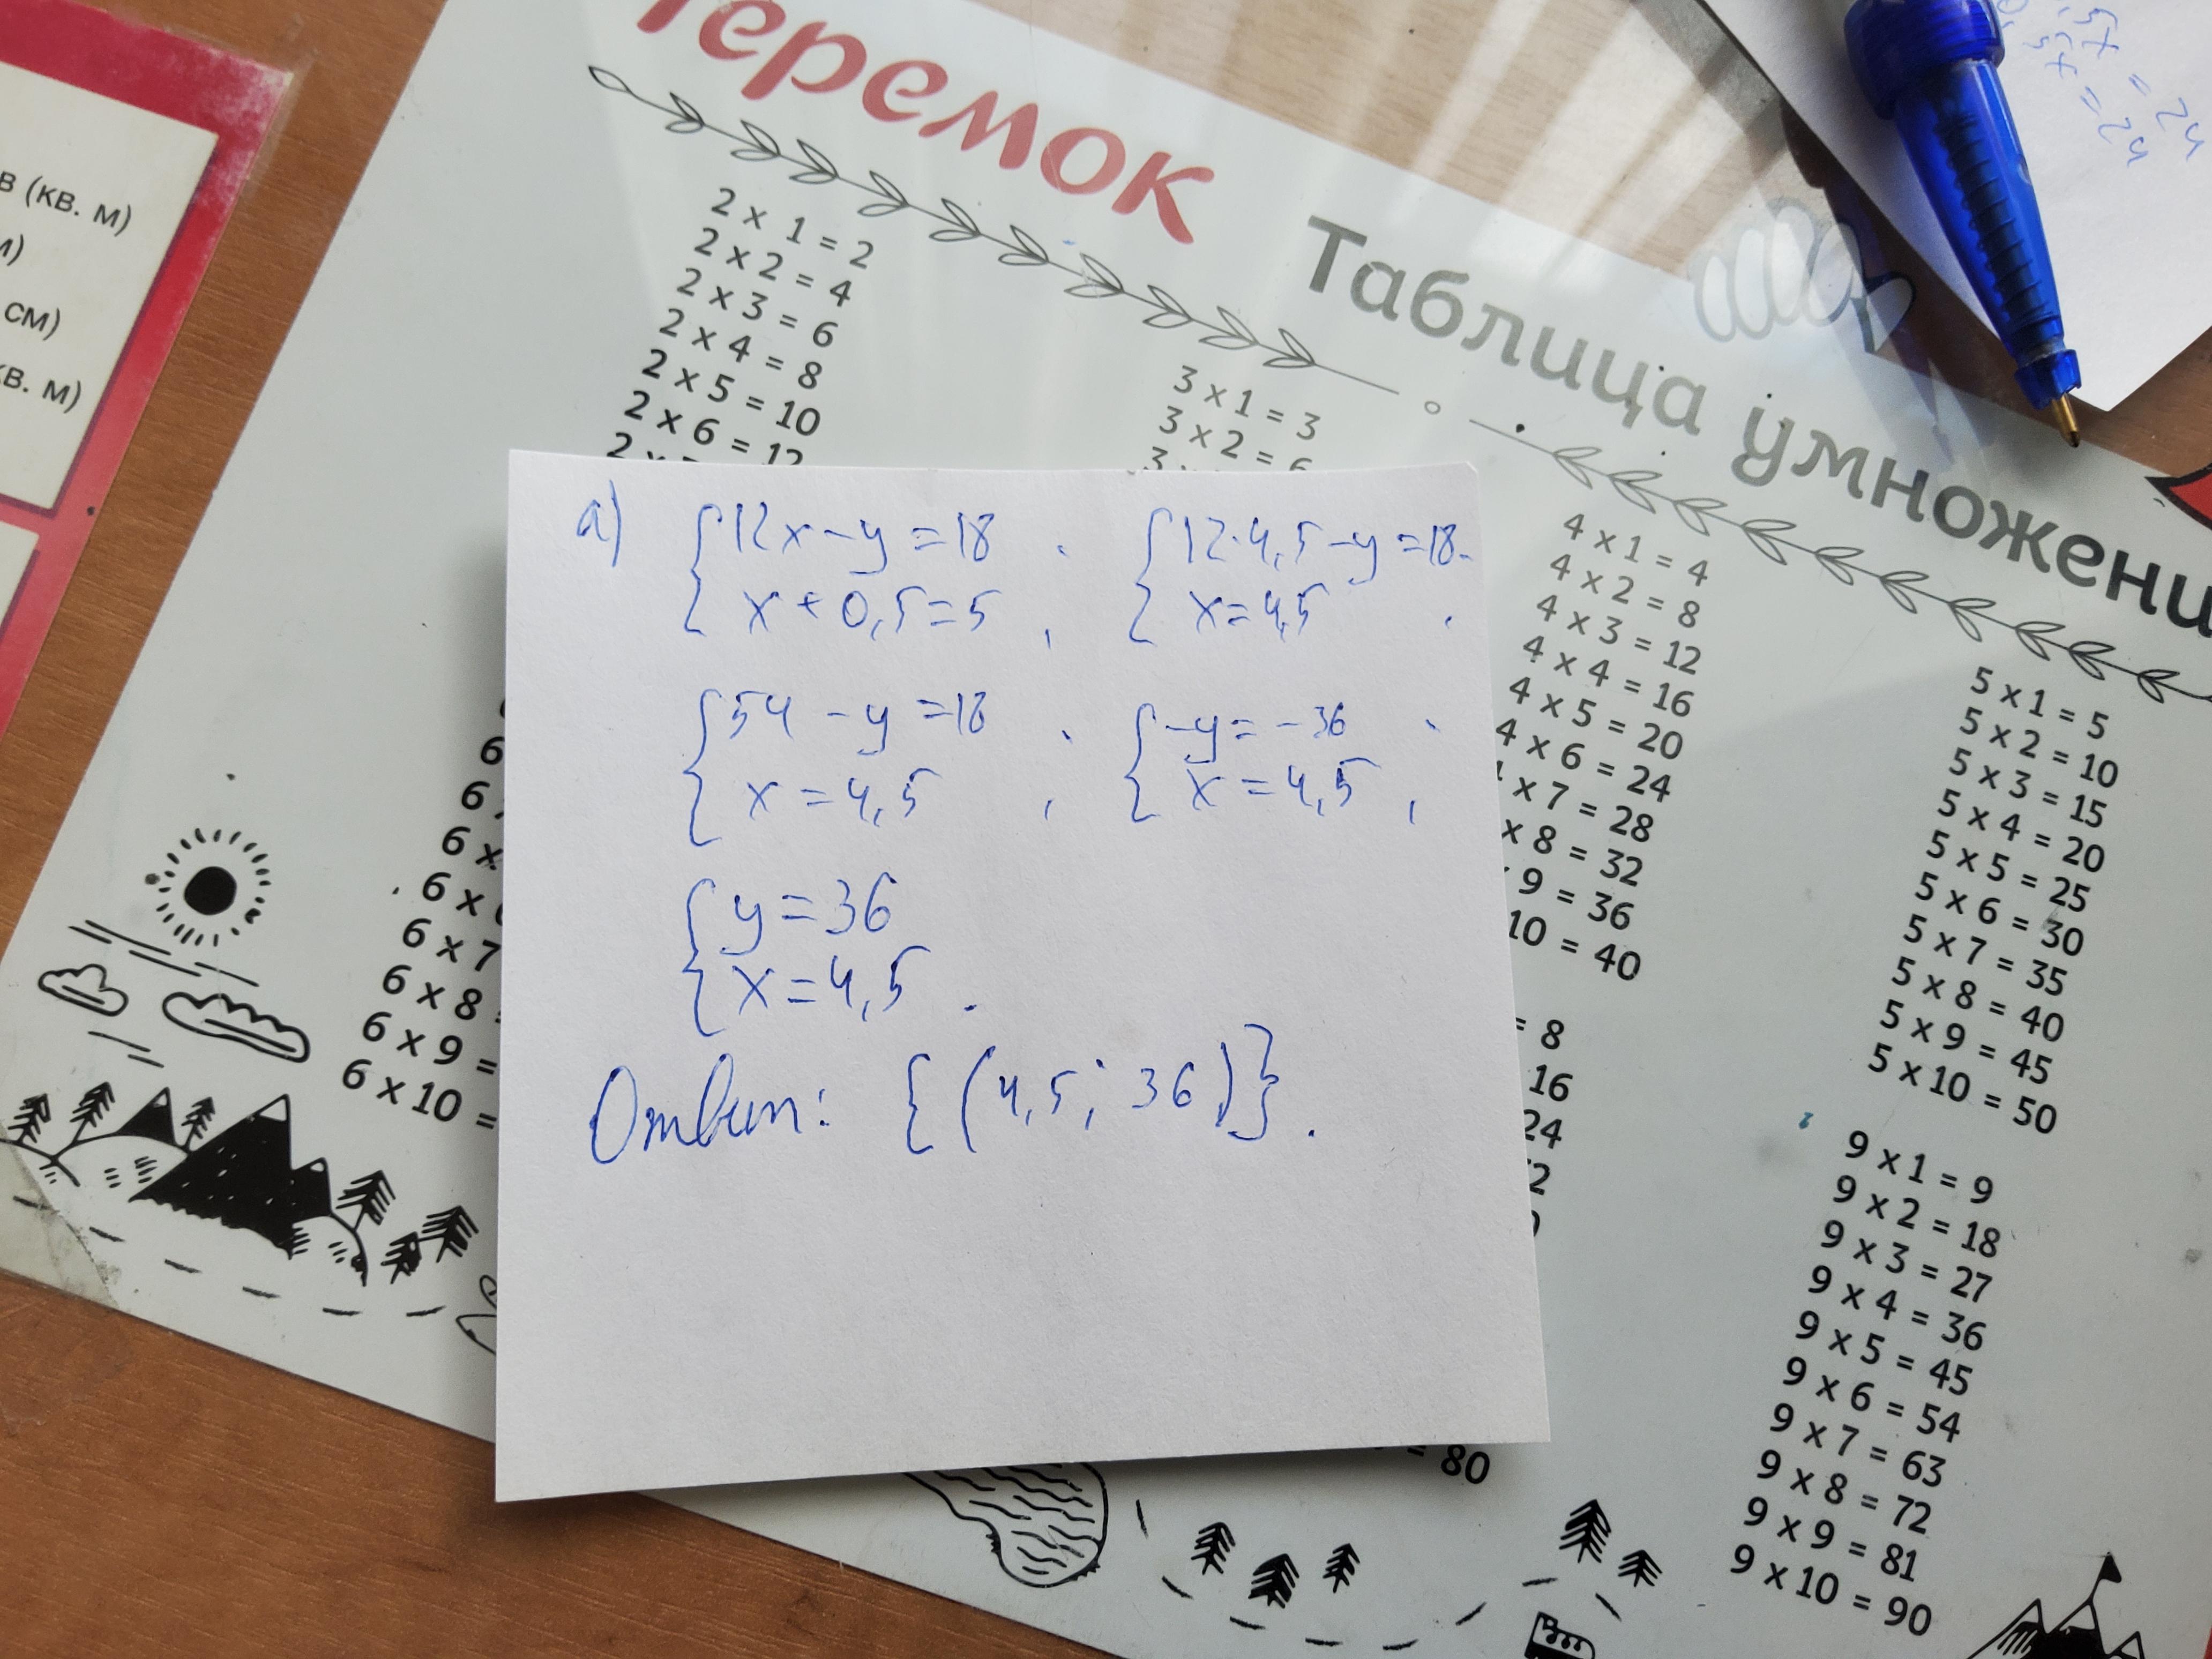 еремок
Таблица умножени
в (кв. м)
м)
см)
кв. м)
2 x 1 = 2
2 x 2 = 4
2 x 3 = 6
2 x 4 = 8
2 x 5 = 10
2 x 6 = 12
3 x 1 = 3
3 x 2 = 6
4 x 1 = 4
4 x 2 = 8
4 x 3 = 12
4 x 4 = 16
4 x 5 = 20
4 x 6 = 24
x 7 = 28
x 8 = 32
9 = 36
10 = 40
5 x 1 = 5
5 x 2 = 10
5 x 3 = 15
5 x 4 = 20
5 x 5 = 25
5 x 6 = 30
5 x 7 = 35
5 x 8 = 40
5 x 9 = 45
5 x 10 = 50
а) { 12x - y = 18 { 12·4,5 - y = 18
x + 0,5 = 5 , x = 4,5
{ 54 - y = 18 { -y = -36
x = 4,5 , x = 4,5 ,
{ y = 36
x = 4,5 .
Ответ: {(4,5; 36)}.
6
6
6 x
6 x
6 x 7
6 x 8
6 x 9 =
6 x 10 =
= 8
16
24
= 80
9 x 1 = 9
9 x 2 = 18
9 x 3 = 27
9 x 4 = 36
9 x 5 = 45
9 x 6 = 54
9 x 7 = 63
9 x 8 = 72
9 x 9 = 81
9 x 10 = 90